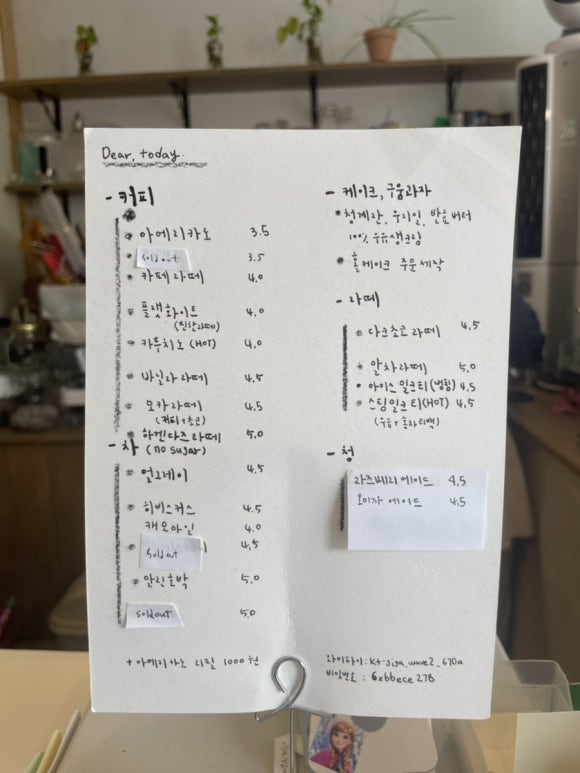 Dear, today.
- 커피
아메리카노 3.5
sold out 3.5
카페라떼 4.0
플랫화이트 4.0
(진한라떼)
카푸치노 (HOT) 4.0
바닐라라떼 4.5
모카라떼 4.5
(커피+초코)
하겐다즈라떼 5.0
- 차 (no sugar)
얼그레이 4.5
히비스커스 4.5
캐모마일 4.0
sold out 4.5
단호박 5.0
sold out 5.0
+ 아메리카노 리필 1000원
- 케이크, 구움과자
청계란, 우리밀, 발효버터
100% 우유생크림
홀케이크 주문제작
- 라떼
다크초코라떼 4.5
말차라떼 5.0
아이스 밀크티(냉침) 4.5
스팀밀크티(HOT) 4.5
(우유+홍차티백)
- 청
라즈베리에이드 4.5
오미자 에이드 4.5
와이파이 : kt_giga_wave2_670a
비밀번호 : 6xbbece278